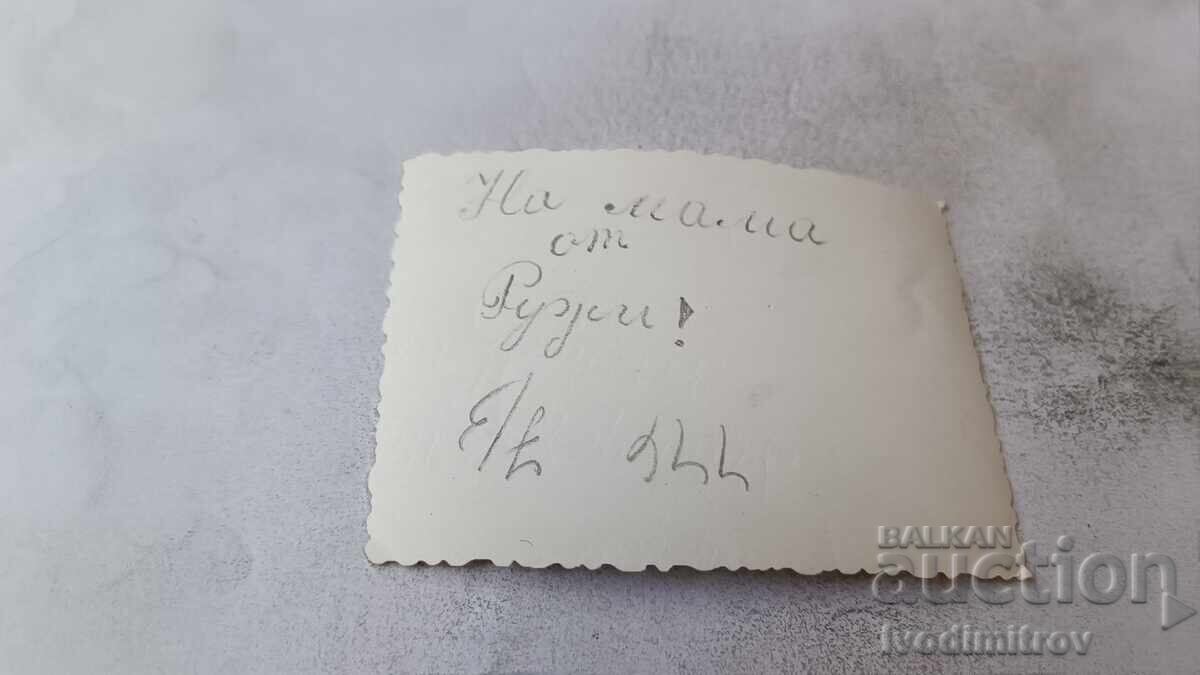 На мама
от
Ружи!
BALKAN
auction
ivodimitrov